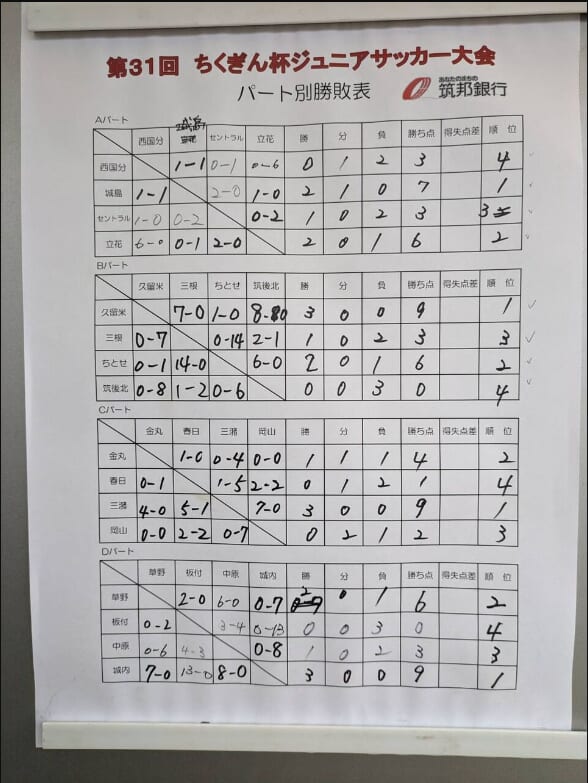 第31回 ちくぎん杯ジュニアサッカー大会
パート別勝敗表 あなたのまちの 筑邦銀行
Aパート
西国分 城島 セントラル 立花 勝 分 負 勝ち点 得失点差 順 位
西国分 1-1 0-1 0-6 0 1 2 3 4
城島 1-1 2-0 1-0 2 1 0 7 1
セントラル 1-0 0-2 0-2 1 0 2 3 3
立花 6-0 0-1 2-0 2 0 1 6 2
Bパート
久留米 三根 ちとせ 筑後北 勝 分 負 勝ち点 得失点差 順 位
久留米 7-0 1-0 8-0 3 0 0 9 1
三根 0-7 0-14 2-1 1 0 2 3 3
ちとせ 0-1 14-0 6-0 2 0 1 6 2
筑後北 0-8 1-2 0-6 0 0 3 0 4
Cパート
金丸 春日 三潴 岡山 勝 分 負 勝ち点 得失点差 順 位
金丸 1-0 0-4 0-0 1 1 1 4 2
春日 0-1 1-5 2-2 0 1 2 1 4
三潴 4-0 5-1 7-0 3 0 0 9 1
岡山 0-0 2-2 0-7 0 2 1 2 3
Dパート
草野 板付 中原 城内 勝 分 負 勝ち点 得失点差 順 位
草野 2-0 6-0 0-7 2 0 1 6 2
板付 0-2 3-4 0-13 0 0 3 0 4
中原 0-6 4-3 0-8 1 0 2 3 3
城内 7-0 13-0 8-0 3 0 0 9 1